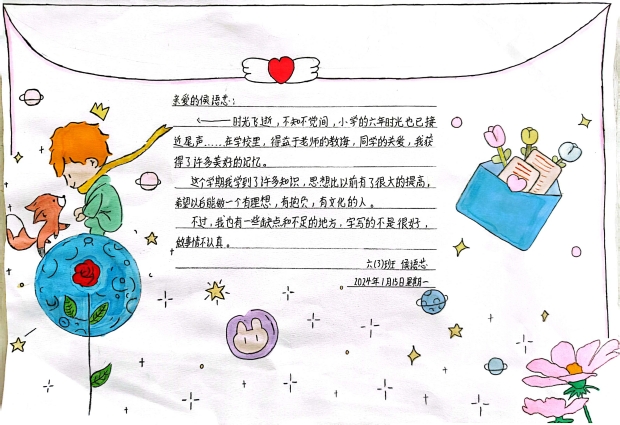 亲爱的侯语芯:
时光飞逝,不知不觉间,小学的六年时光也已接
近尾声……在学校里,得益于老师的教诲,同学的关爱,我获
得了许多美好的记忆。
这个学期我学到了许多知识,思想比以前有了很大的提高,
希望以后能做一个有理想,有抱负,有文化的人。
不过,我也有一些缺点和不足的地方,字写的不是很好,
做事情不认真。
六(3)班 侯语芯
2024年1月15日星期一